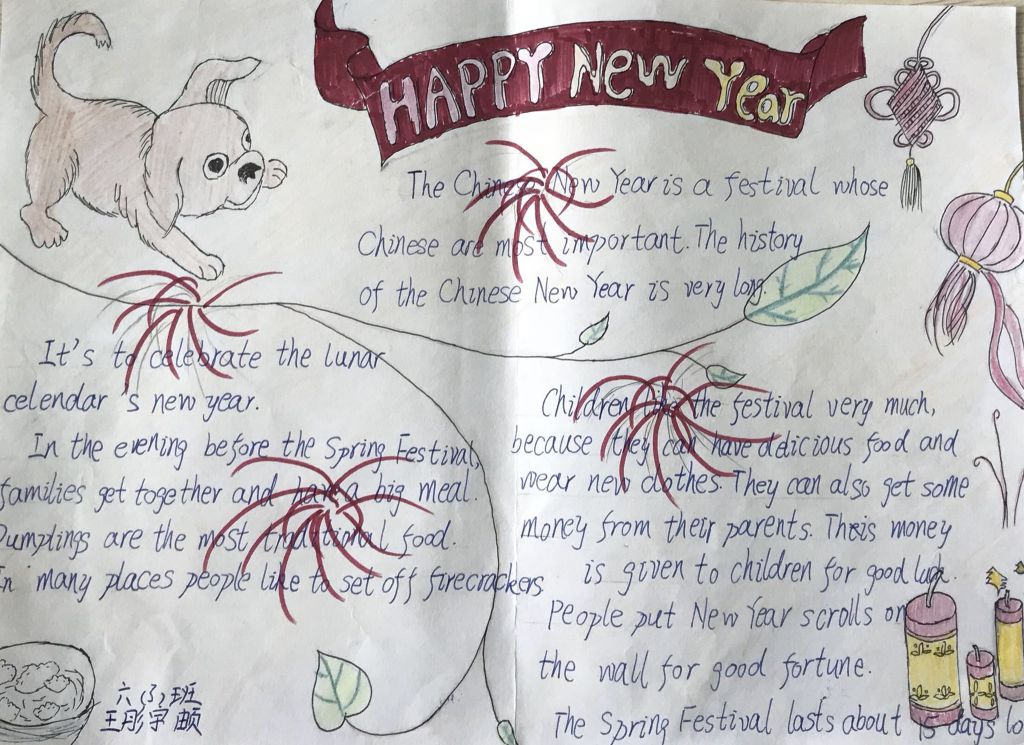 HAPPY New Year
The Chinese New Year is a festival whose
Chinese are most important. The history
of the Chinese New Year is very long.
It's to celebrate the lunar
celendar 's new year.
In the evening before the Spring Festival,
families get together and have a big meal.
Dumplings are the most traditional food.
In many places people like to set off firecrackers.
六(3)班
Children like the festival very much,
because they can have delicious food and
wear new clothes. They can also get some
money from their parents. This money
is given to children for good luck.
People put New Year scrolls on
the wall for good fortune.
The Spring Festival lasts about 15 days lo